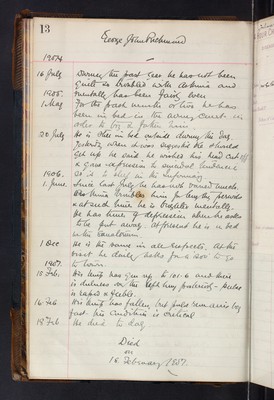 13
George John Richmond
1904
16 July During the past year he has not been
quite so troubled with asthma and
1905. mentally has been fairly even
1 May For the past month or two he has
been in bed in the airing court in
order to try &
20 July He is still in bed outside during the day
Yesterday when it was suggested he should
get up he said he wished his head cut off
& gave expression to similar
1906. He is to sleep in the Infirmary
1 June. Since last July he has not
Asthma troubles him for lengthy periods
& at such time he is brighter mentally.
He has times of depression when he asks
to be put away. At present he is in bed
in the
1 Dec He is the same in all respects, at the
most he daily asks for a
1907. to
15 Feb. His temp has gone up to 101.6 and there
is dulness on the left lung posteriorly - pulse
is rapid & feeble.
16 Feb His temp has fallen but pulse remains very
fast his condition is critical
18 Feb He died to day
Died
on
18 February 1907.